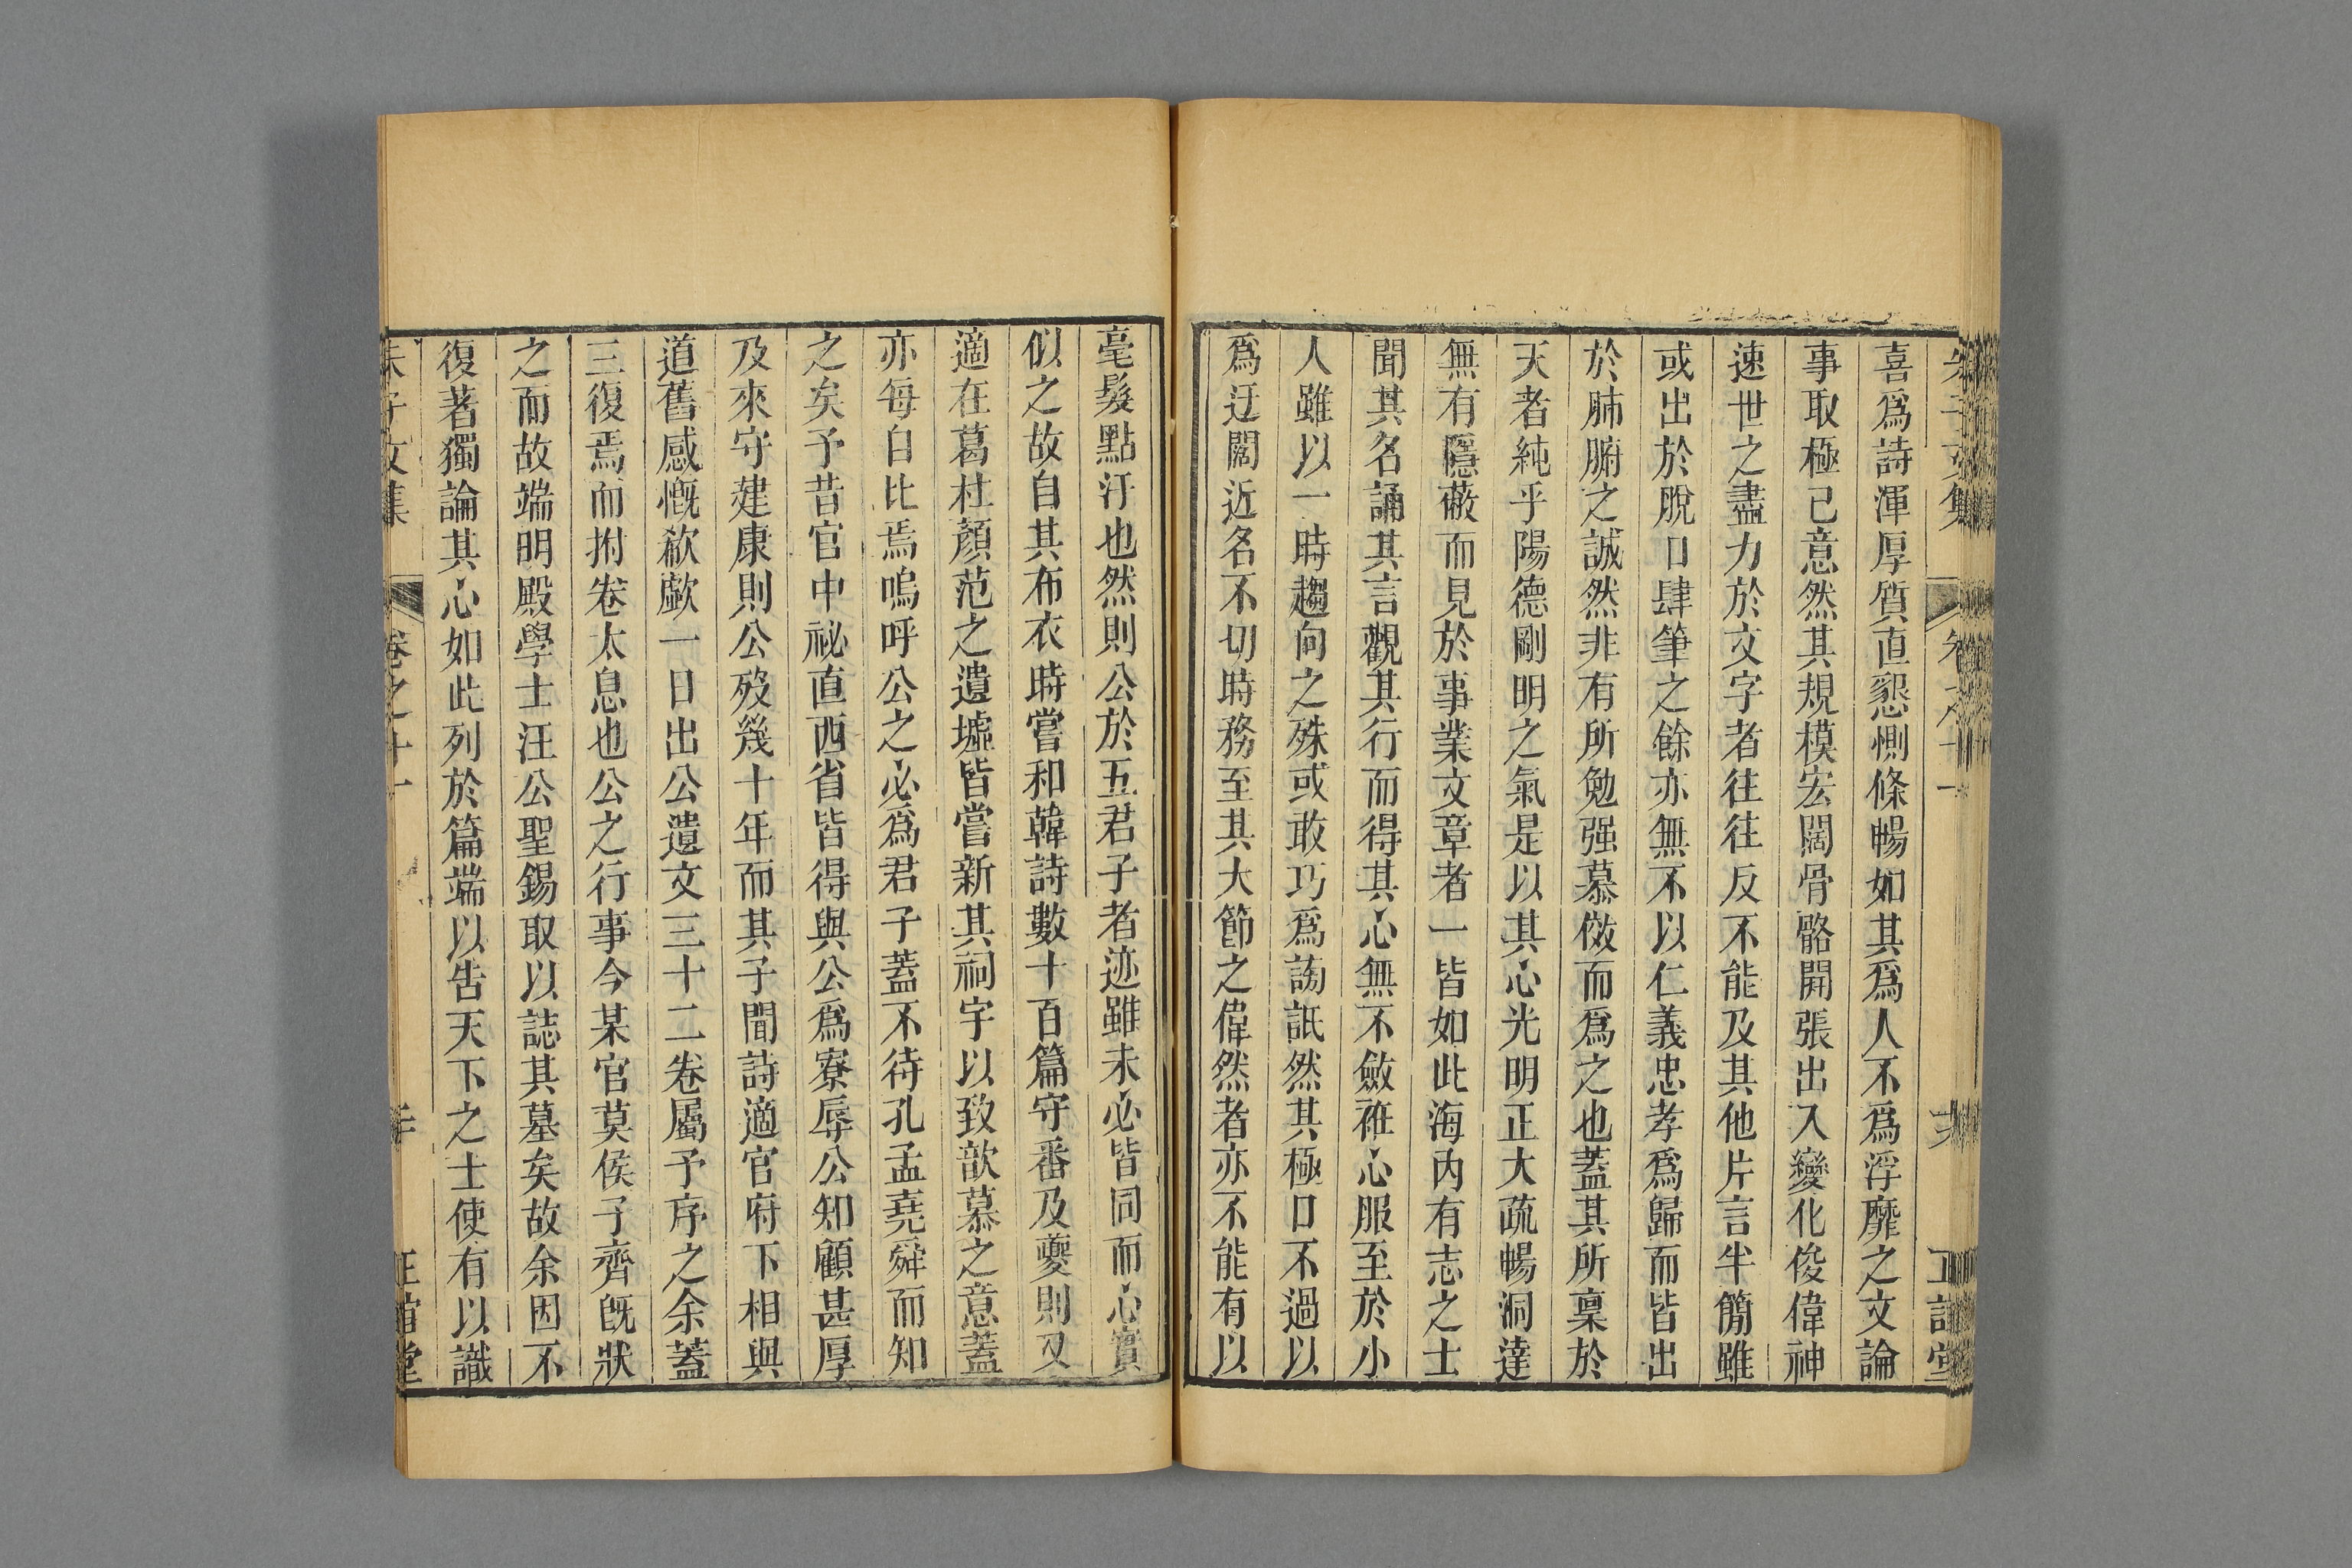 喜爲詩渾厚質直懇惻條暢如其爲人不爲浮靡之文論
事取極已意然其規模宏闊骨骼開張出入變化俊偉神
速世之盡力於文字者往往反不能及其他片言半簡雖
或出於脫口肆筆之餘亦無不以仁義忠孝爲歸而皆出
於肺腑之誠然非有所勉强慕傚而爲之也蓋其所稟於
天者純乎陽德剛明之氣是以其心光明正大疏暢洞達
無有隱蔽而見於事業文章者一皆如此海內有志之士
聞其名誦其言觀其行而得其心無不斂衽心服至於小
人雖以一時趨向之殊或敢巧爲謗詆然其極口不過以
爲迂闊近名不切時務至其大節之偉然者亦不能有以
毫髮點汙也然則公於五君子者迹雖未必皆同而心實
似之故自其布衣時嘗和韓詩數十百篇守番及夔則又
適在葛杜顏范之遺墟皆嘗新其祠宇以致歆慕之意蓋
亦每自比焉嗚呼公之必爲君子蓋不待孔孟堯舜而知
之矣予昔官中祕直西省皆得與公爲寮辱公知顧甚厚
及來守建康則公歿幾十年而其子聞詩適官府下相與
道舊感慨欷歔一日出公遺文三十二卷屬予序之余蓋
三復焉而拊卷太息也公之行事今某官莫侯子齊旣狀
之而故端明殿學士汪公聖錫取以誌其墓矣故余因不
復著獨論其心如此列於篇端以告天下之士使有以識
朱子文集 卷之十一